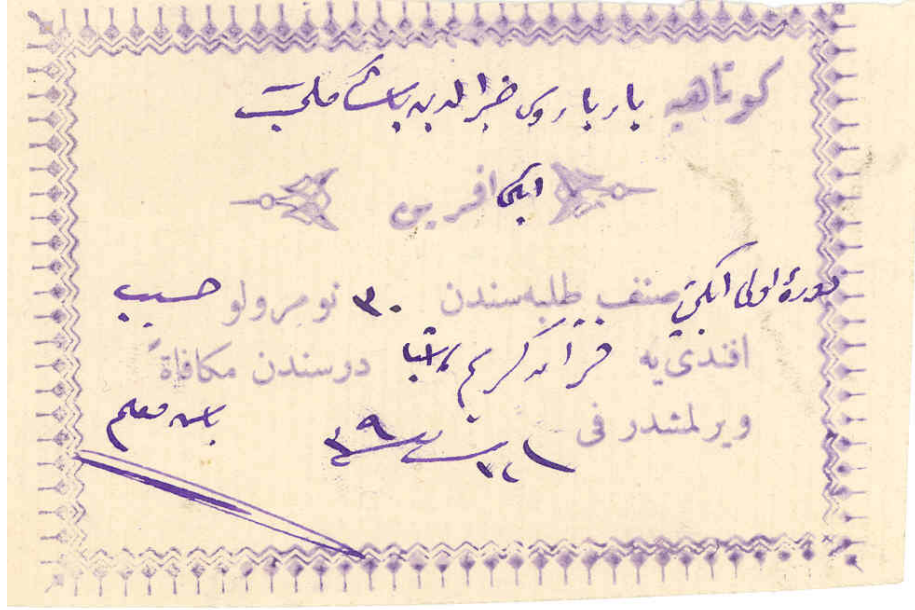 كوتاهیه باربا روس خیر الدین پاشا مكتبی
ایكی افرین
دورهٔ اولی ایكنجی صنف طلبه‌سندن ٣٠ نومرولو حسیب
افندی‌یه قرآن كریم درسندن مكافاةً
ویرلمشدر فی
باش معلم